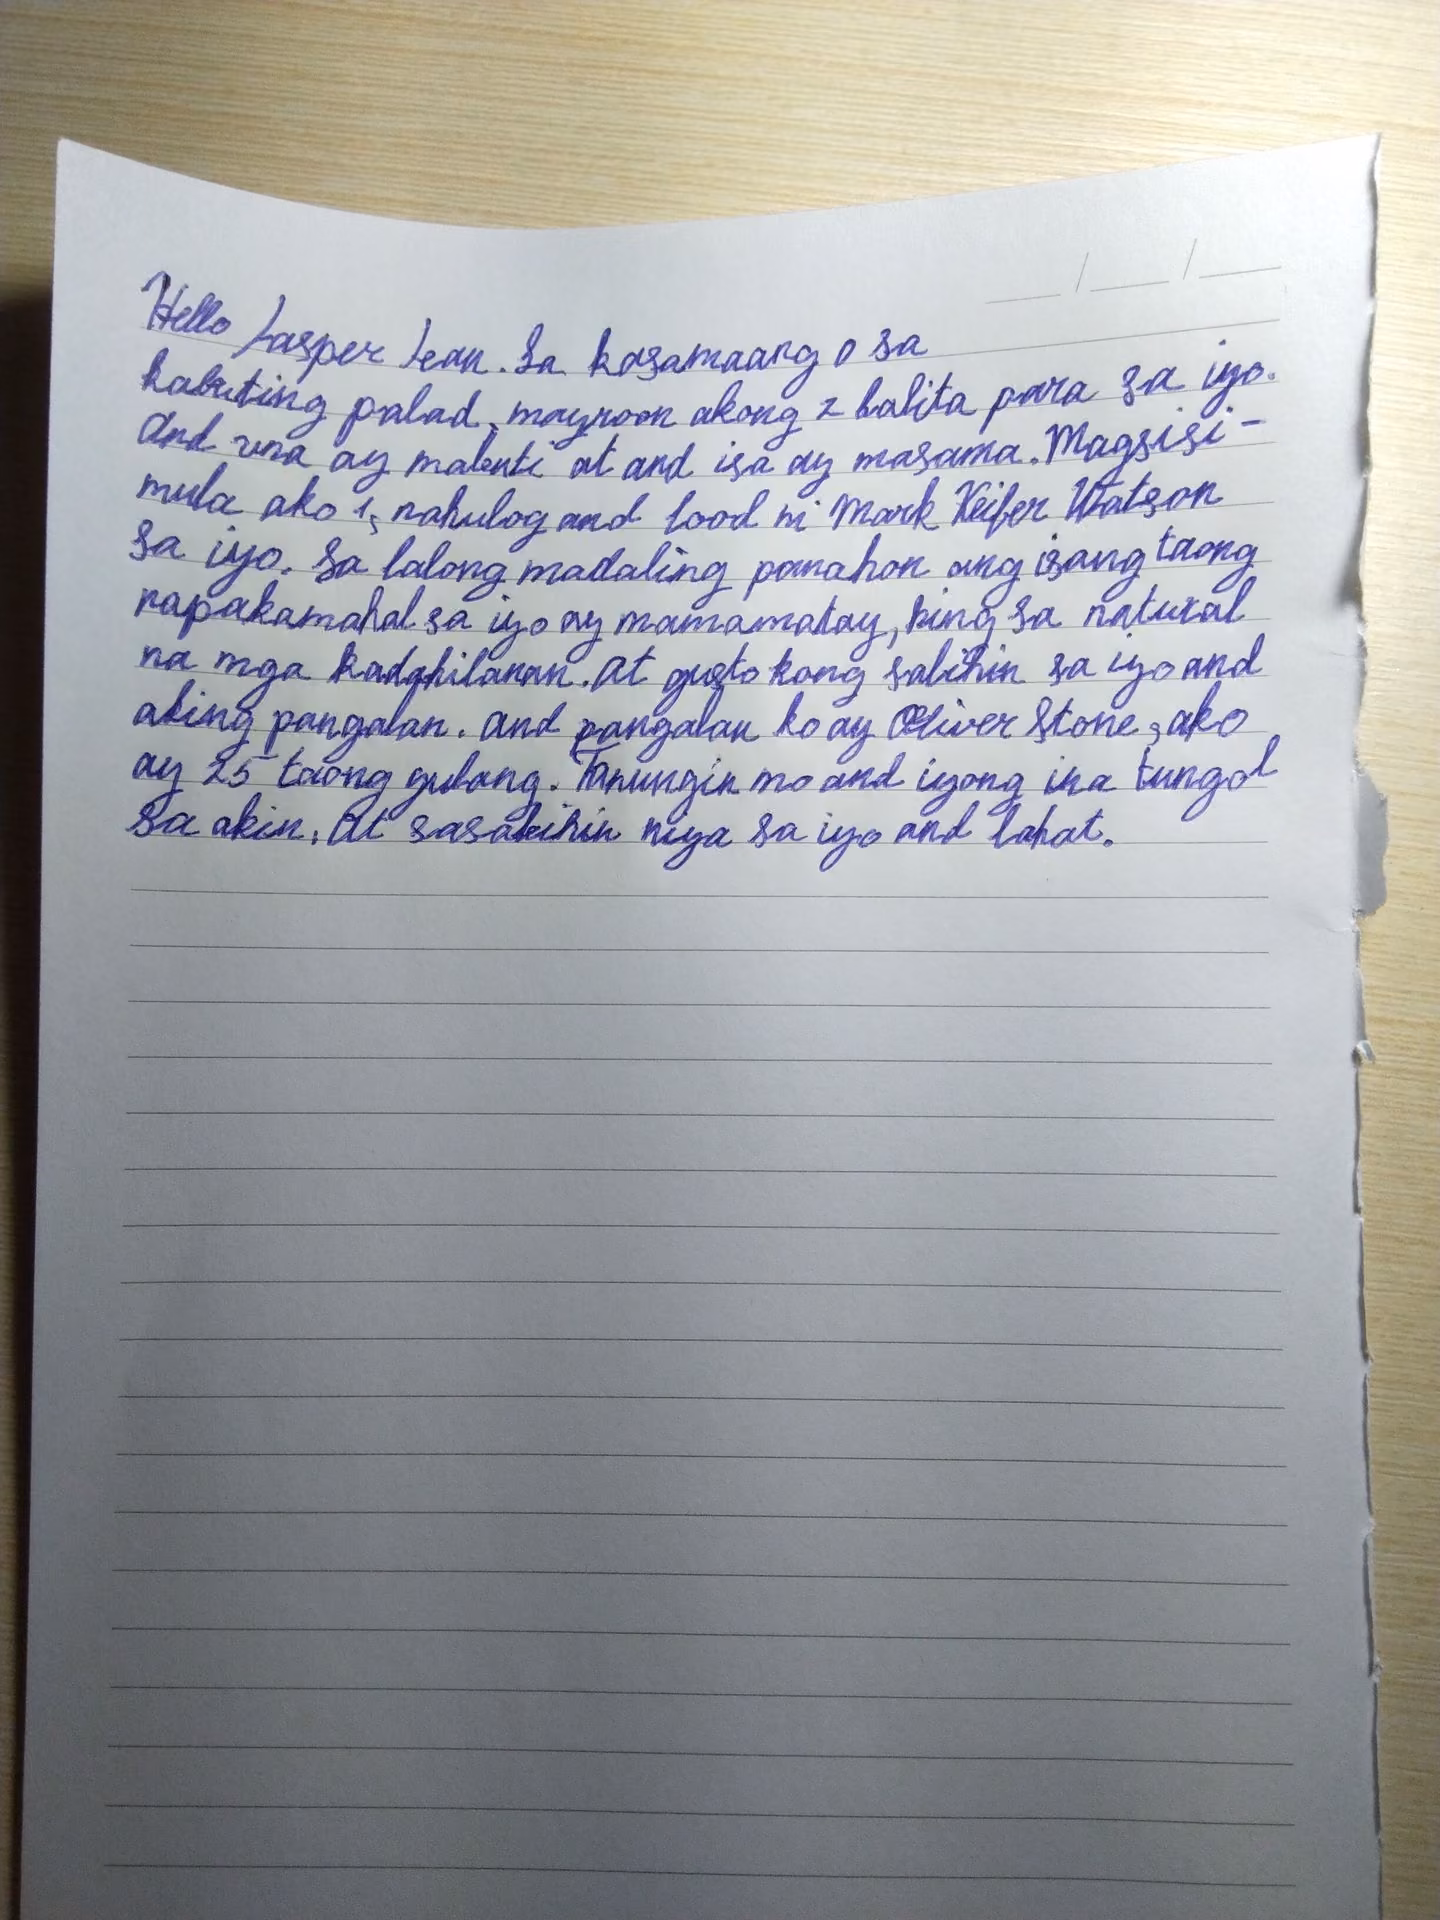 Hello Jasper Jean. Sa kasamaang o sa
kabuting palad, mayroon akong 2 balita para sa iyo.
And una ay mabuti at and isa ay masama. Magsisi-
mula ako 1, nahulog and lood ni Mark Keifer Watson
sa iyo. Sa lalong madaling panahon ang isang taong
napakamahal sa iyo ay mamamatay, hing sa natural
na mga kadahilanan. At gusto kong sabihin sa iyo and
aking pangalan. and pangalan ko ay Oliver Stone, ako
ay 25 taong gulang. Tanungin mo and iyong ina tungol
sa akin. At sasabihin niya sa iyo and lahat.